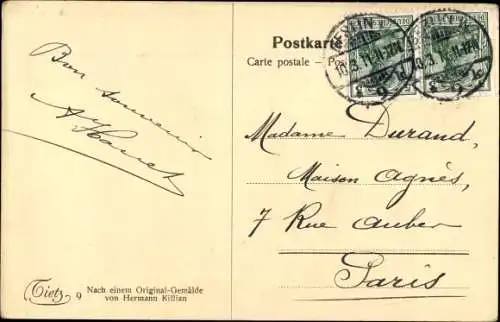 Postkarte
Carte postale – Pos
Bon souvenir
Madame Durand,
Maison Agnès,
7 Rue Auber
Paris
Tietz 9
Nach einem Original-Gemälde
von Hermann Killian